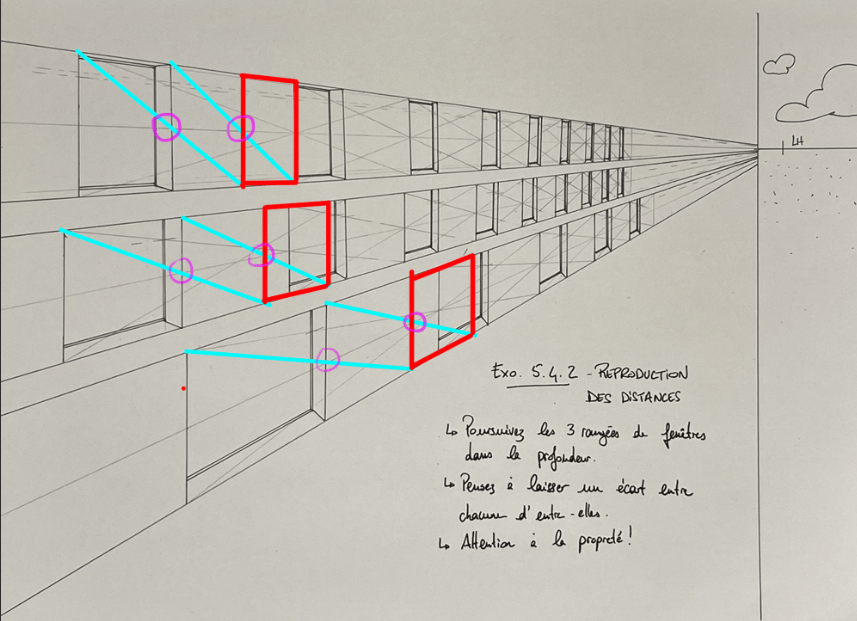 LH
Exo. 5.4.2 - REPRODUCTION
DES DISTANCES
↳ Poursuivez les 3 rangées de fenêtres
dans la profondeur.
↳ Pensez à laisser un écart entre
chacune d'entre-elles.
↳ Attention à la propreté!